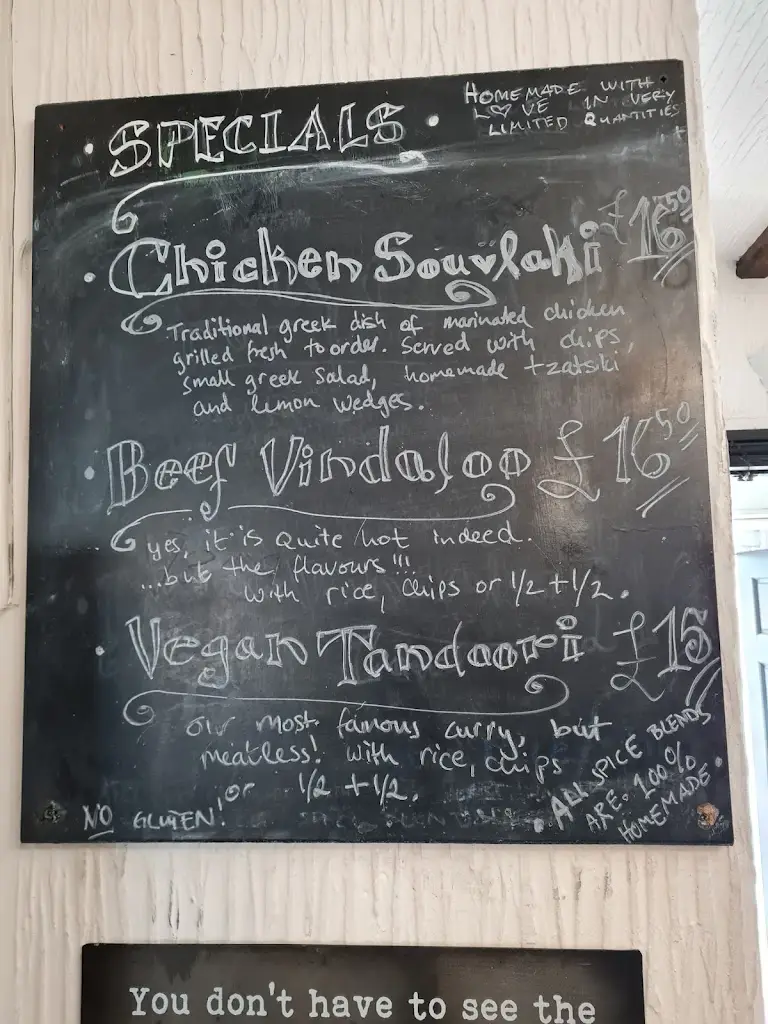 · SPECIALS ·
HOMEMADE WITH
L♡VE IN VERY
LIMITED QUANTITIES
· Chicken Souvlaki £16.50
Traditional greek dish of marinated chicken
grilled fresh to order. Served with chips,
small greek salad, homemade tzatsiki
and lemon wedges.
· Beef Vindaloo £16.50
yes, it is quite hot indeed.
...but the flavours!!!
with rice, chips or 1/2 + 1/2.
· Vegan Tandoori £15
our most famous curry, but
meatless! with rice, chips
or 1/2 + 1/2.
NO GLUTEN!
· ALL SPICE BLENDS
ARE 100%
HOMEMADE ·
You don't have to see the